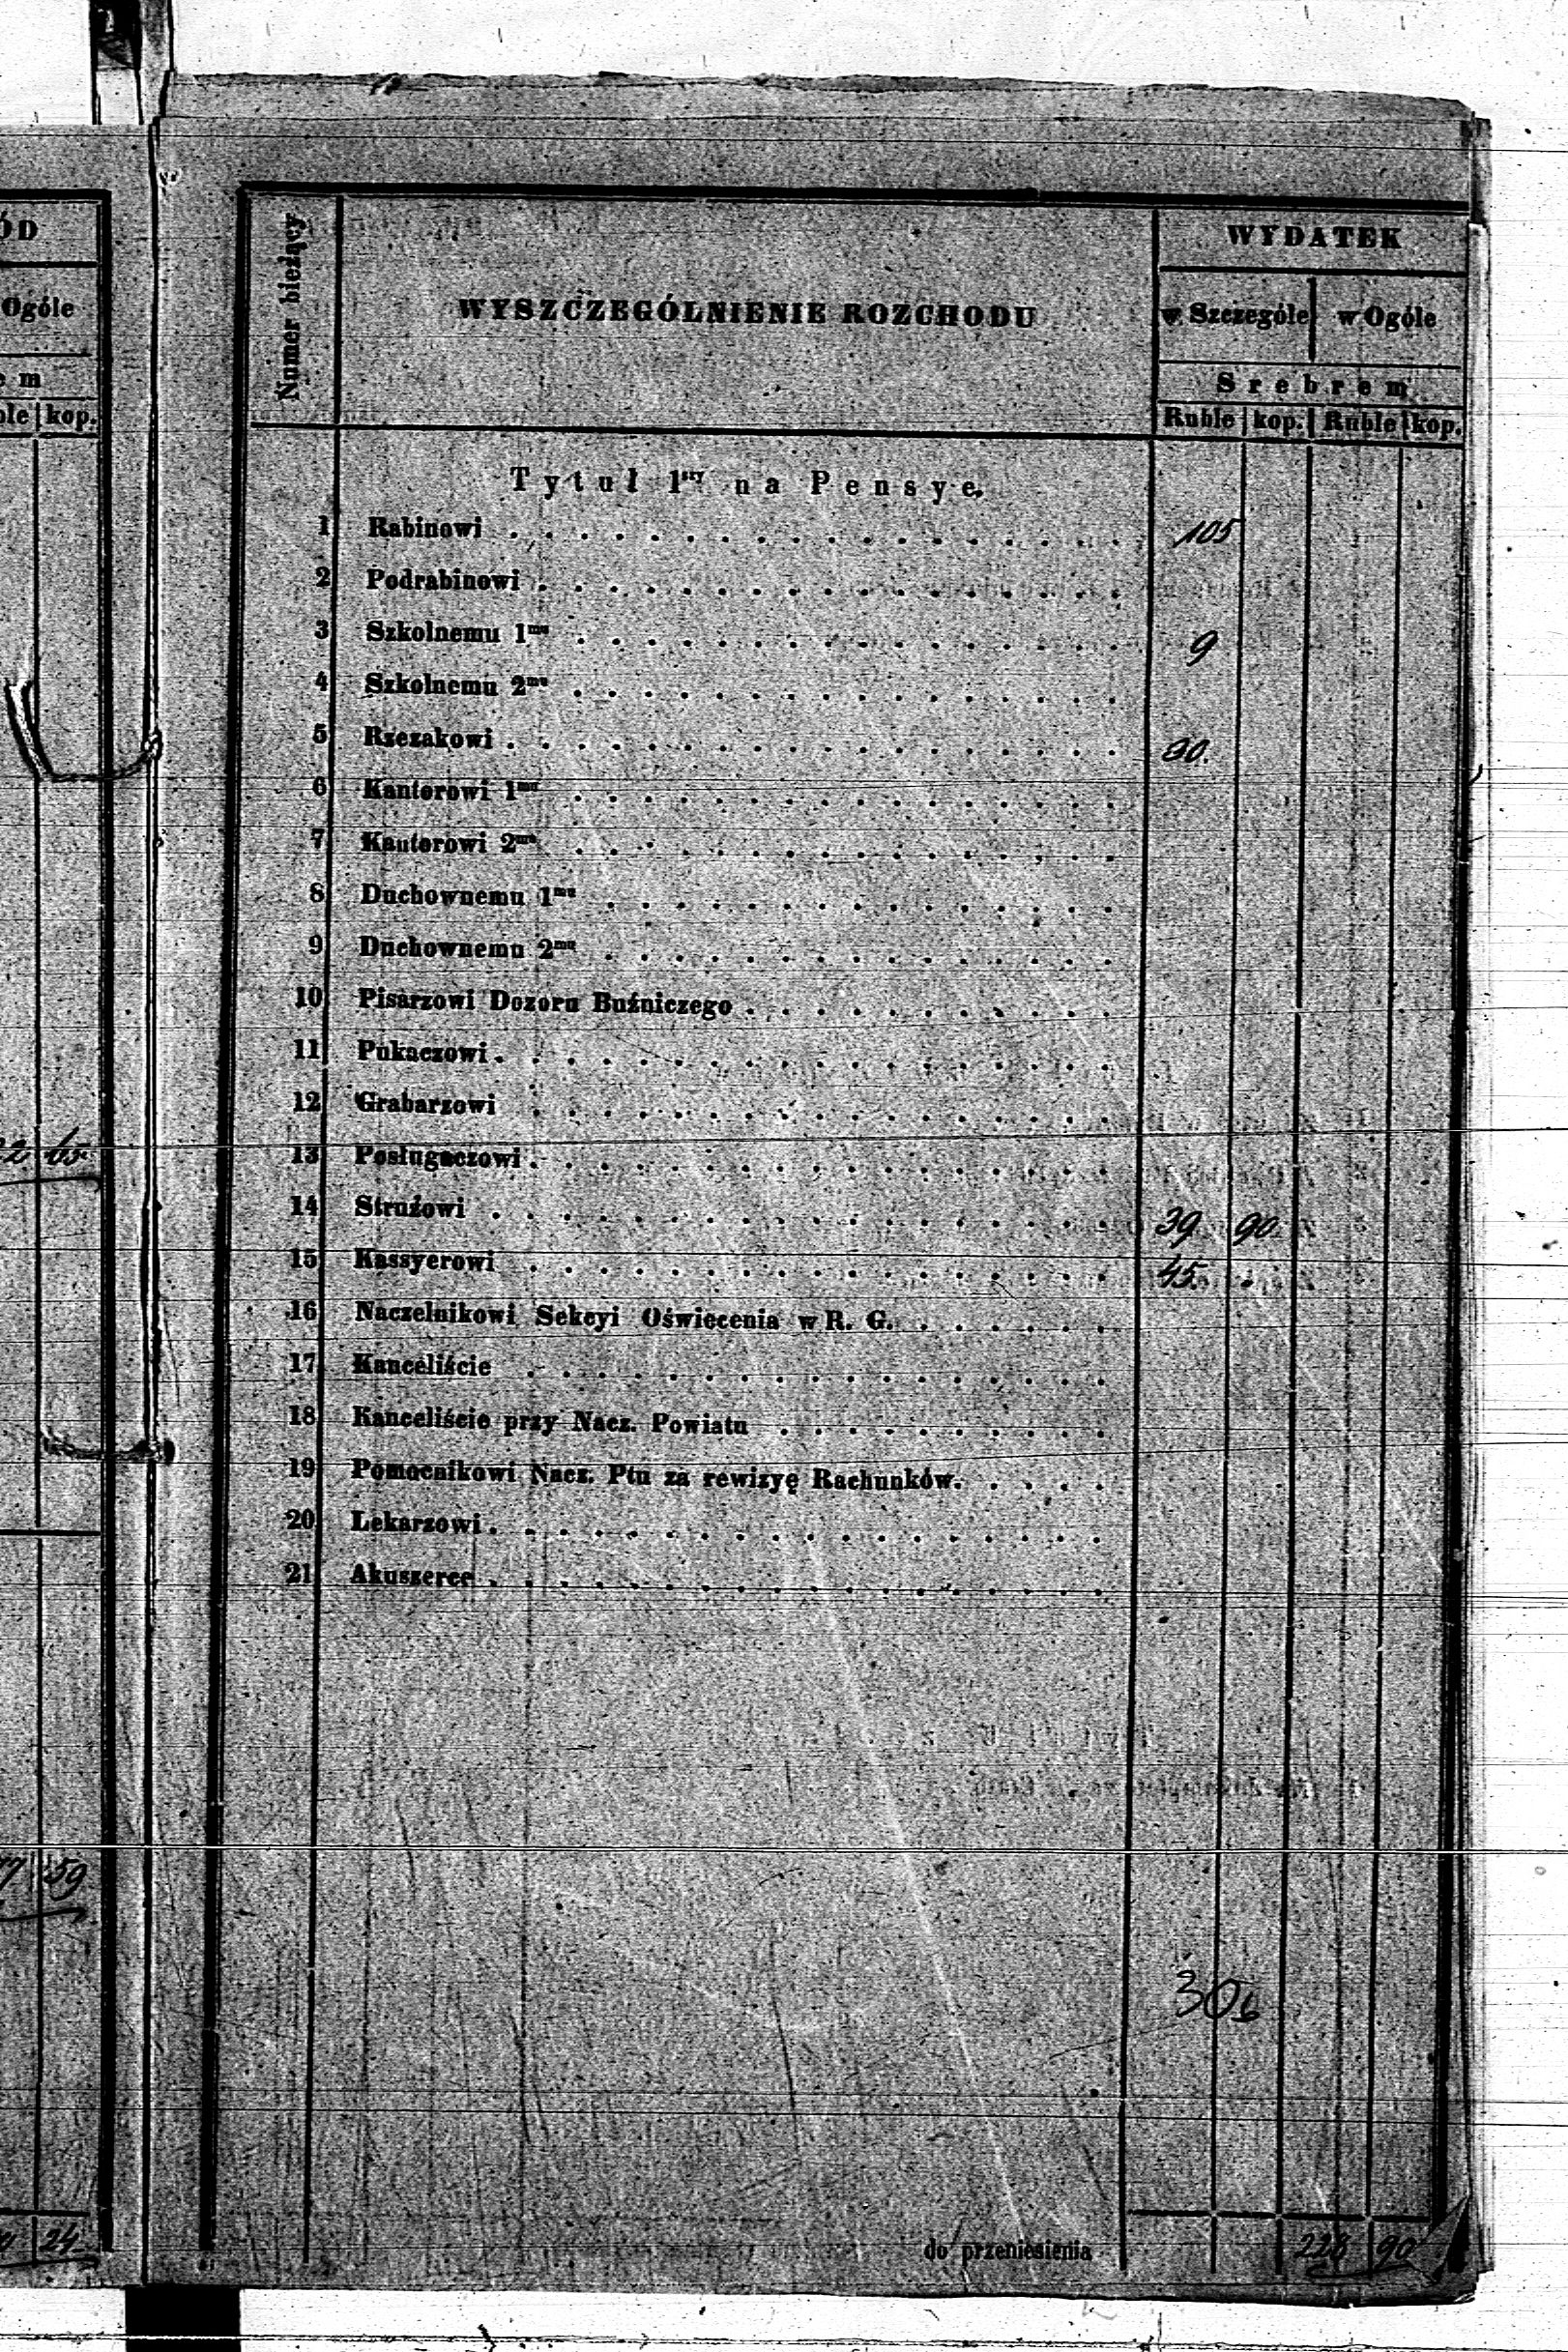 ÓD
Ogóle
e m
ble kop.
65
59
24
Numer bieżący
WYSZCZEGÓLNIENIE ROZCHODU
WYDATEK
w Szczególe w Ogóle
Srebrem
Ruble kop. Ruble kop.
Tytuł 1szy na Pensye.
1 Rabinowi . . . 105
2 Podrabinowi . . .
3 Szkolnemu 1mu . . . 9
4 Szkolnemu 2mu . . .
5 Rzezakowi . . . 30.
6 Kantorowi 1mu . . .
7 Kantorowi 2mu . . .
8 Duchownemu 1mu . . .
9 Duchownemu 2mu . . .
10 Pisarzowi Dozoru Buźniczego . . .
11 Pukaczowi . . .
12 Grabarzowi . . .
13 Posługaczowi . . .
14 Strużowi . . . 39 90
15 Kassyerowi . . . 45.
16 Naczelnikowi Sekcyi Oświecenia w R. G. . . .
17 Kanceliście . . .
18 Kanceliście przy Nacz. Powiatu . . .
19 Pomocnikowi Nacz. Ptu za rewizyę Rachunków. . . .
20 Lekarzowi . . .
21 Akuszerce . . .
306
do przeniesienia 228 90